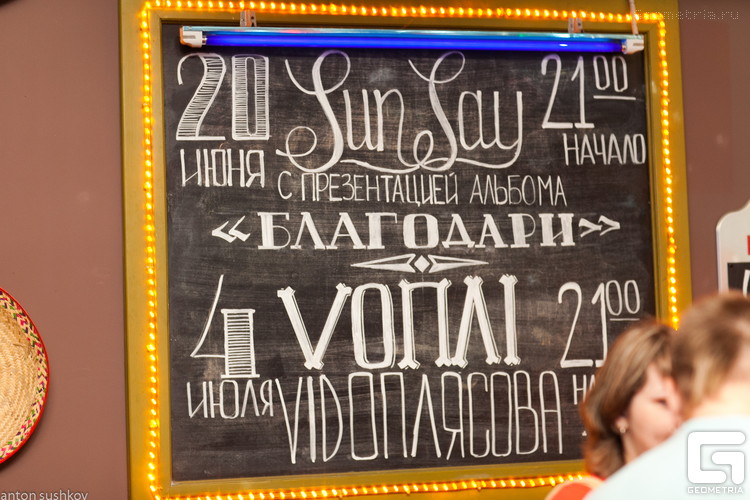 geometria.ru
20 SunSay 21 00
ИЮНЯ НАЧАЛО
С ПРЕЗЕНТАЦИЕЙ АЛЬБОМА
«БЛАГОДАРИ»
4 VОПЛI 21 00
ИЮЛЯ VIDОПЛЯСОВА
anton sushkov
GEOMETRIA